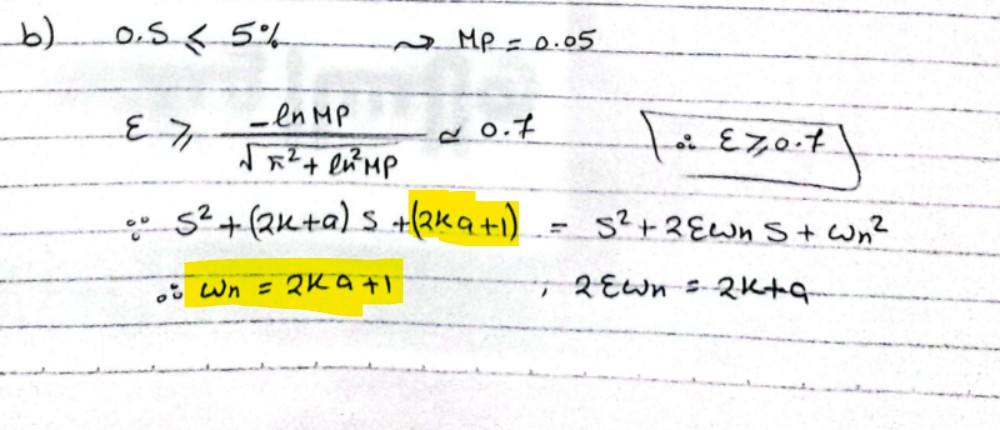 b) 0.S ≤ 5% ⇝ MP = 0.05
ε ≥ -ln MP / √(π² + ln² MP) ≃ 0.7 ∴ ε ≥ 0.7
∵ S² + (2K+a) S + (2Ka+1) = S² + 2εωn S + ωn²
∴ ωn = 2Ka+1 , 2εωn = 2K+a